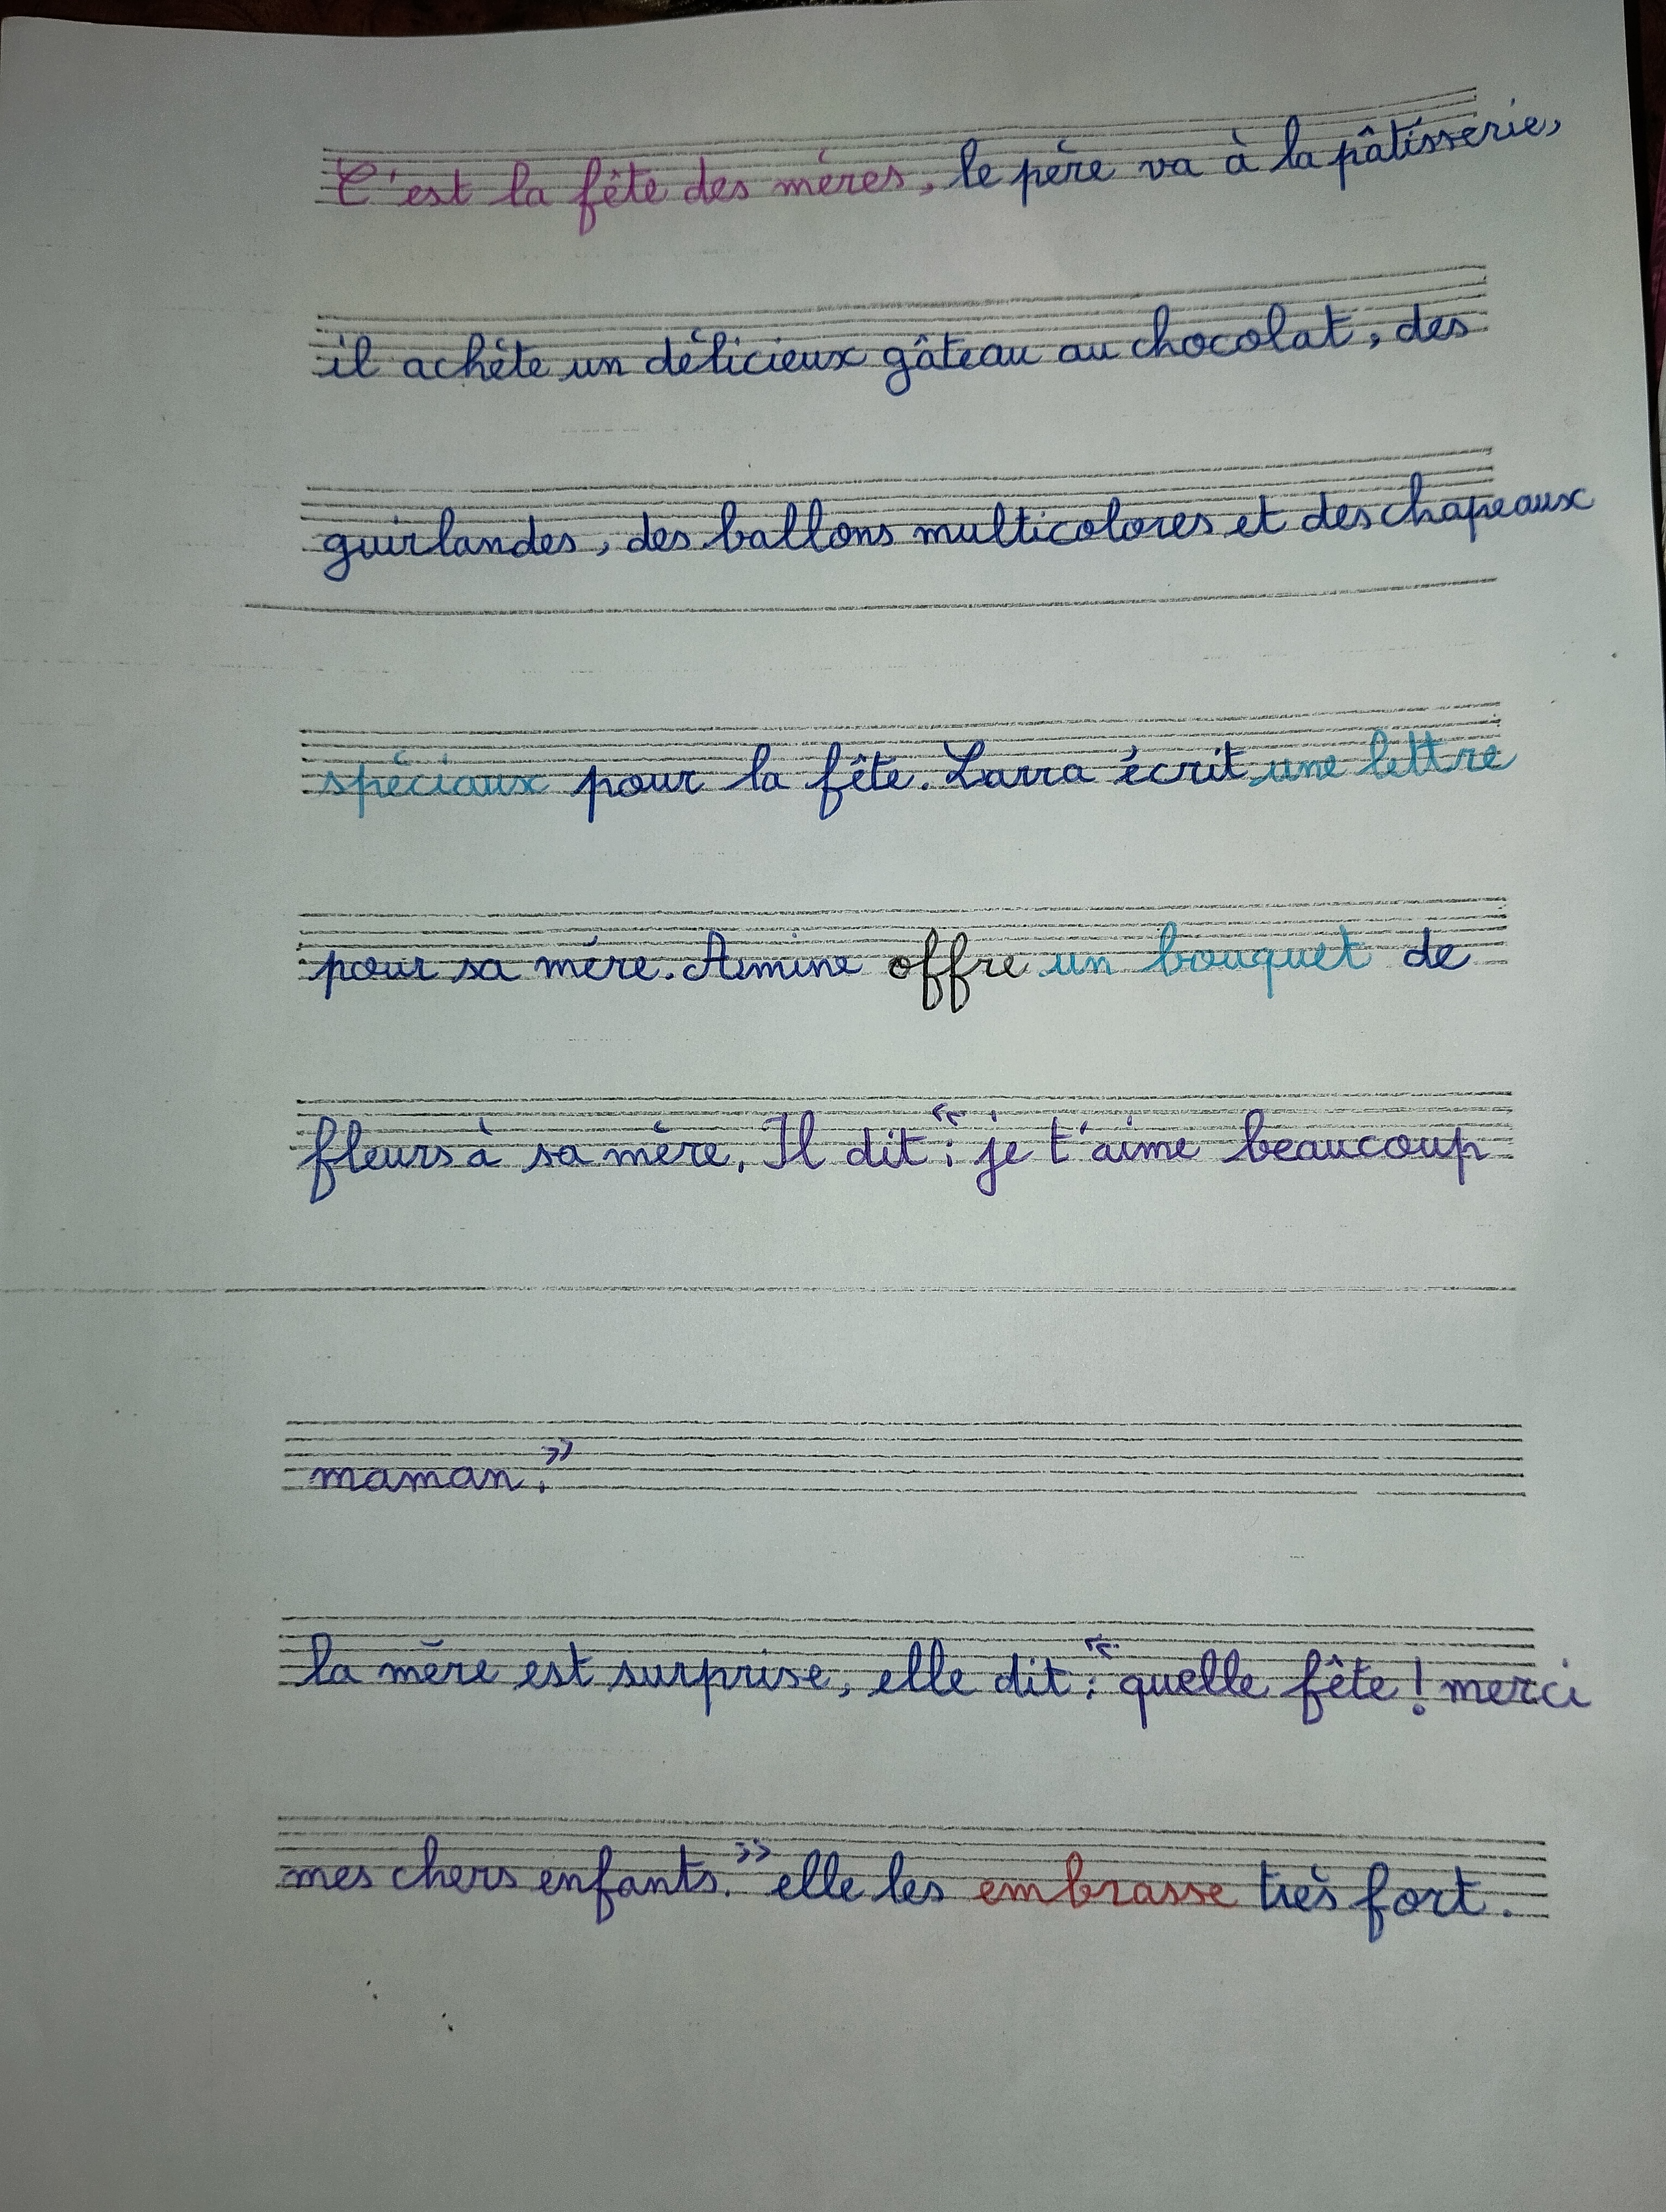 C'est la fête des mères, le père va à la pâtisserie,
il achète un délicieux gâteau au chocolat, des
guirlandes, des ballons multicolores et des chapeaux
spéciaux pour la fête. Larra écrit une lettre
pour sa mère. Amine offre un bouquet de
fleurs à sa mère. Il dit : « je t'aime beaucoup
maman. »
la mère est surprise, elle dit : « quelle fête ! merci
mes chers enfants. » elle les embrasse très fort.